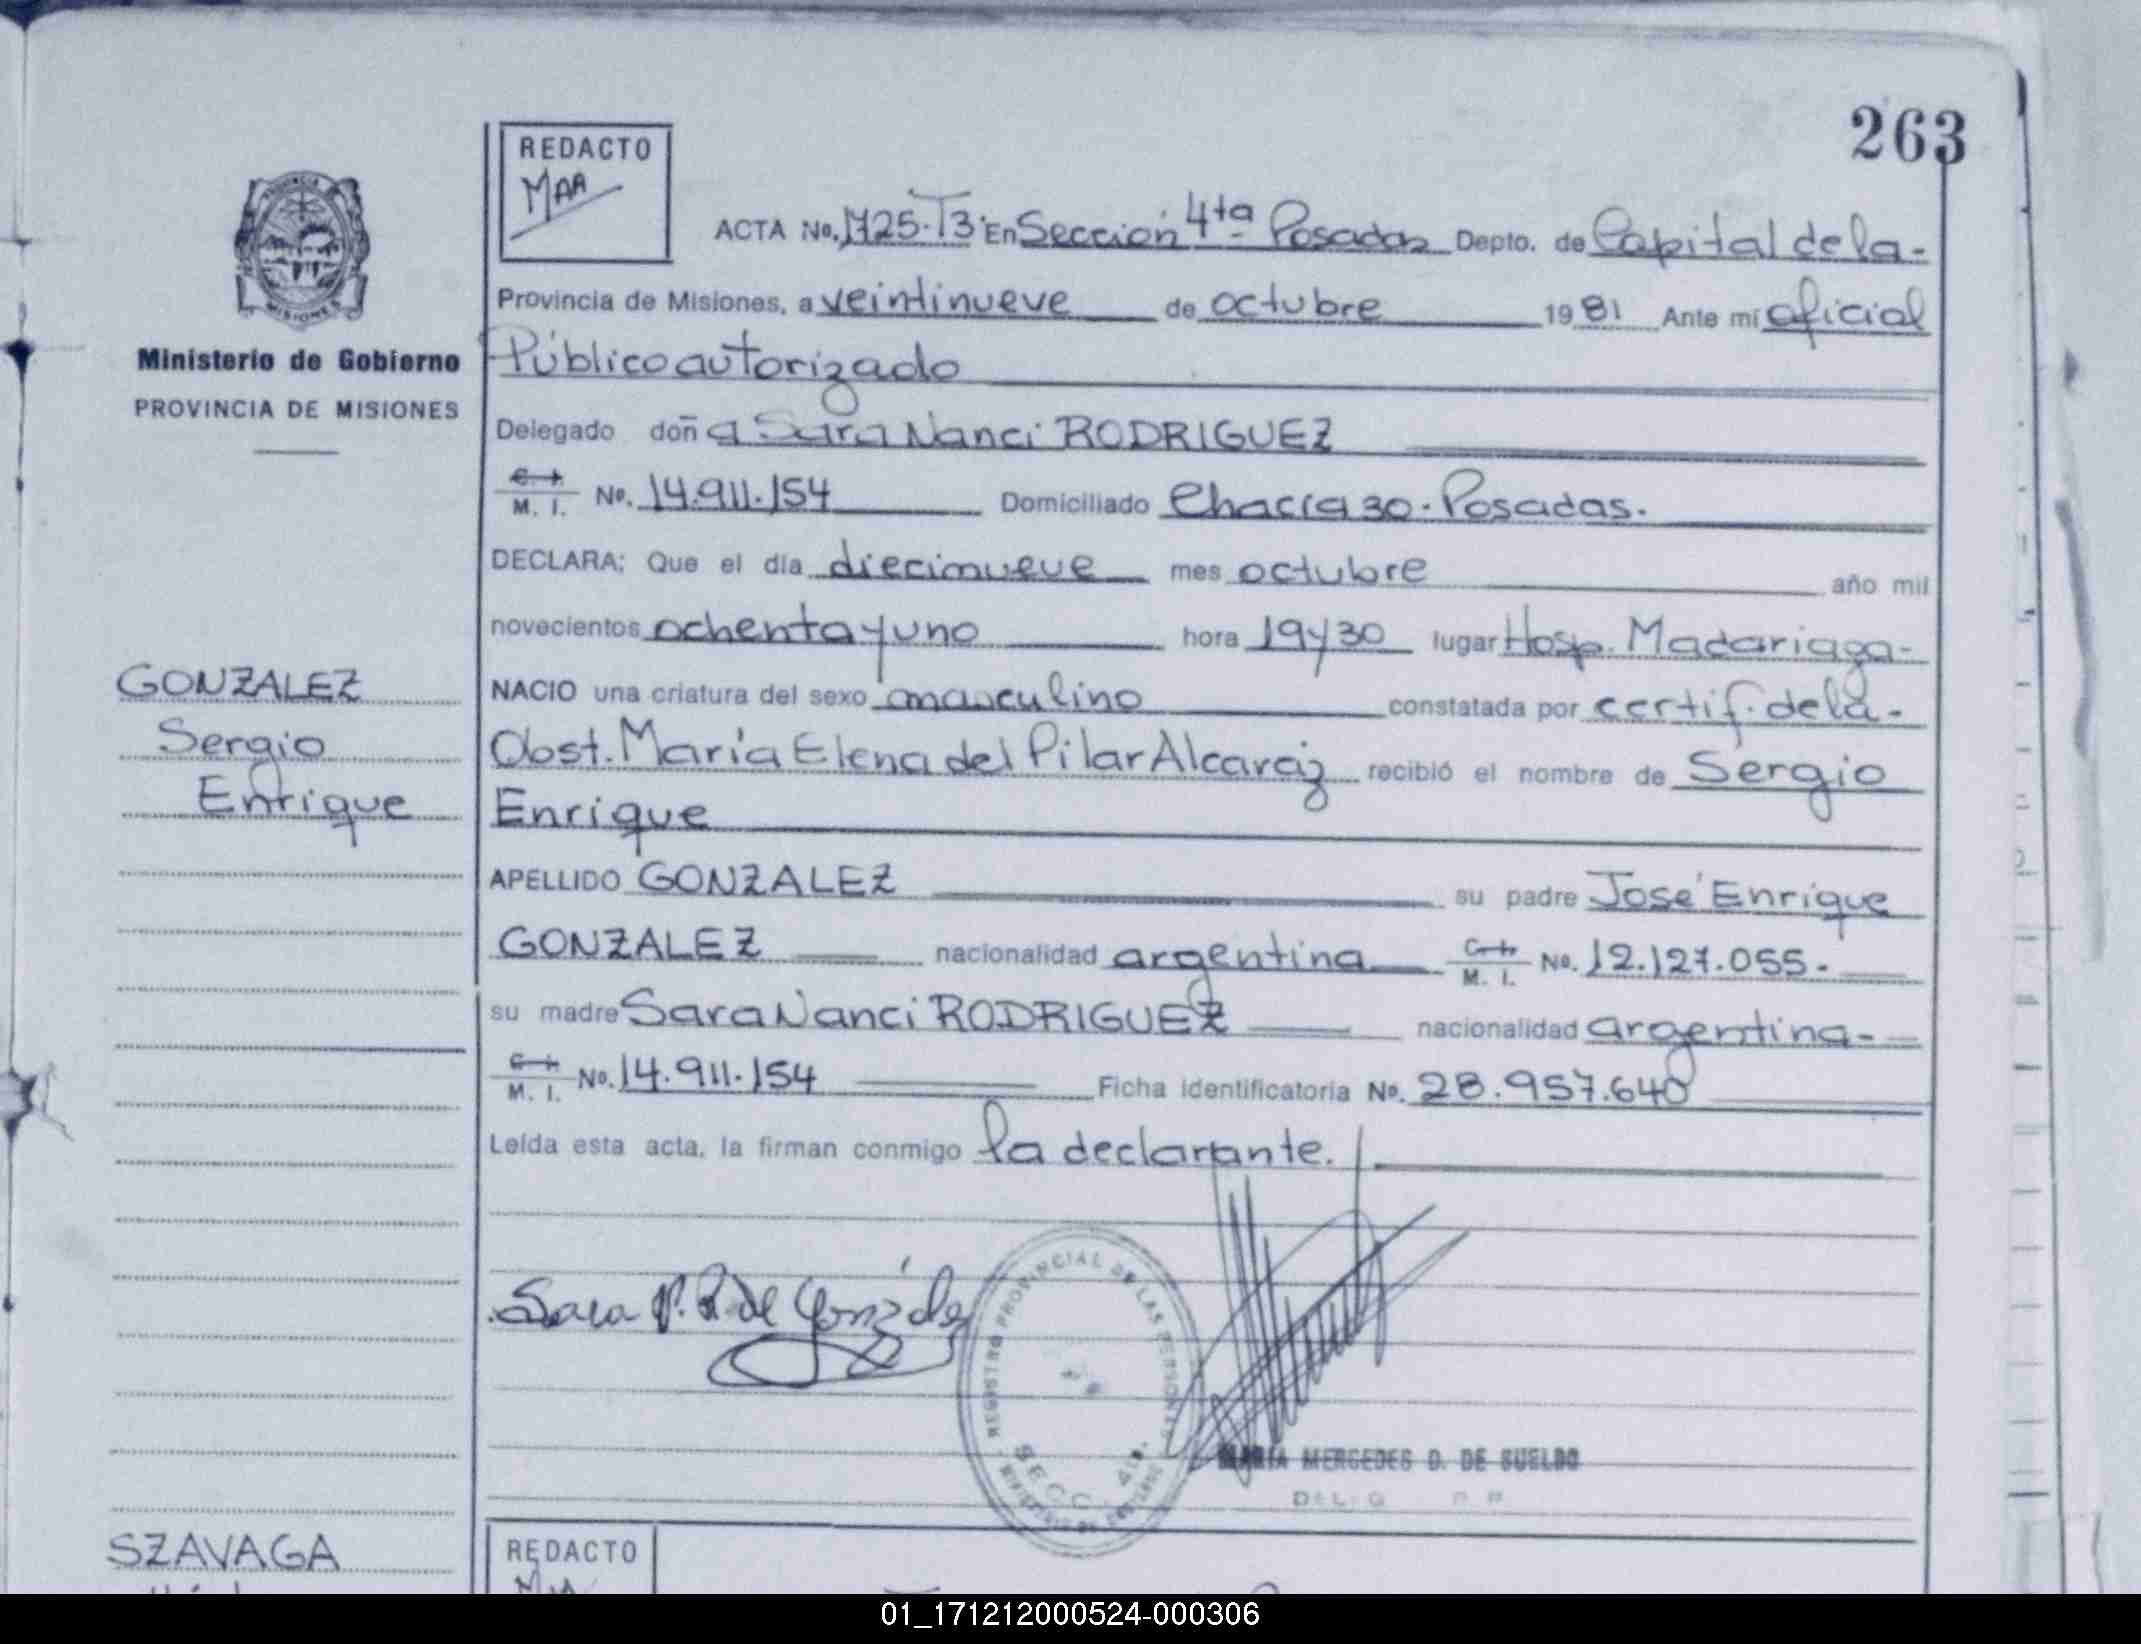 263
REDACTO
MAA
ACTA No. 1725-T3 En Sección 4ta Posadas Depto. de Capital de la-
Provincia de Misiones, a veintinueve de octubre 1981 Ante mí oficial
Ministerio de Gobierno
Público autorizado
PROVINCIA DE MISIONES
Delegado doña Sara Nanci RODRIGUEZ
M. I. No. 14.911.154 Domiciliado Chacra 30 - Posadas.
DECLARA: Que el día diecinueve mes octubre año mil
novecientos ochenta y uno hora 19 y 30 lugar Hosp. Madariaga-
GONZALEZ
NACIO una criatura del sexo masculino constatada por certif. de la-
Sergio
Obst. María Elena del Pilar Alcaraz recibió el nombre de Sergio
Enrique
Enrique
APELLIDO GONZALEZ su padre José Enrique
GONZALEZ nacionalidad argentina M. I. No. 12.127.055.-
su madre Sara Nanci RODRIGUEZ nacionalidad argentina-
M. I. No. 14.911.154 Ficha identificatoria No. 28.957.640
Leída esta acta, la firman conmigo la declarante.
Sara N. R. de González
REGISTRO PROVINCIAL DE LAS PERSONAS
SECC. 4ta.
MARIA MERCEDES D. DE SUELDO
SZAVAGA
REDACTO
01_171212000524-000306